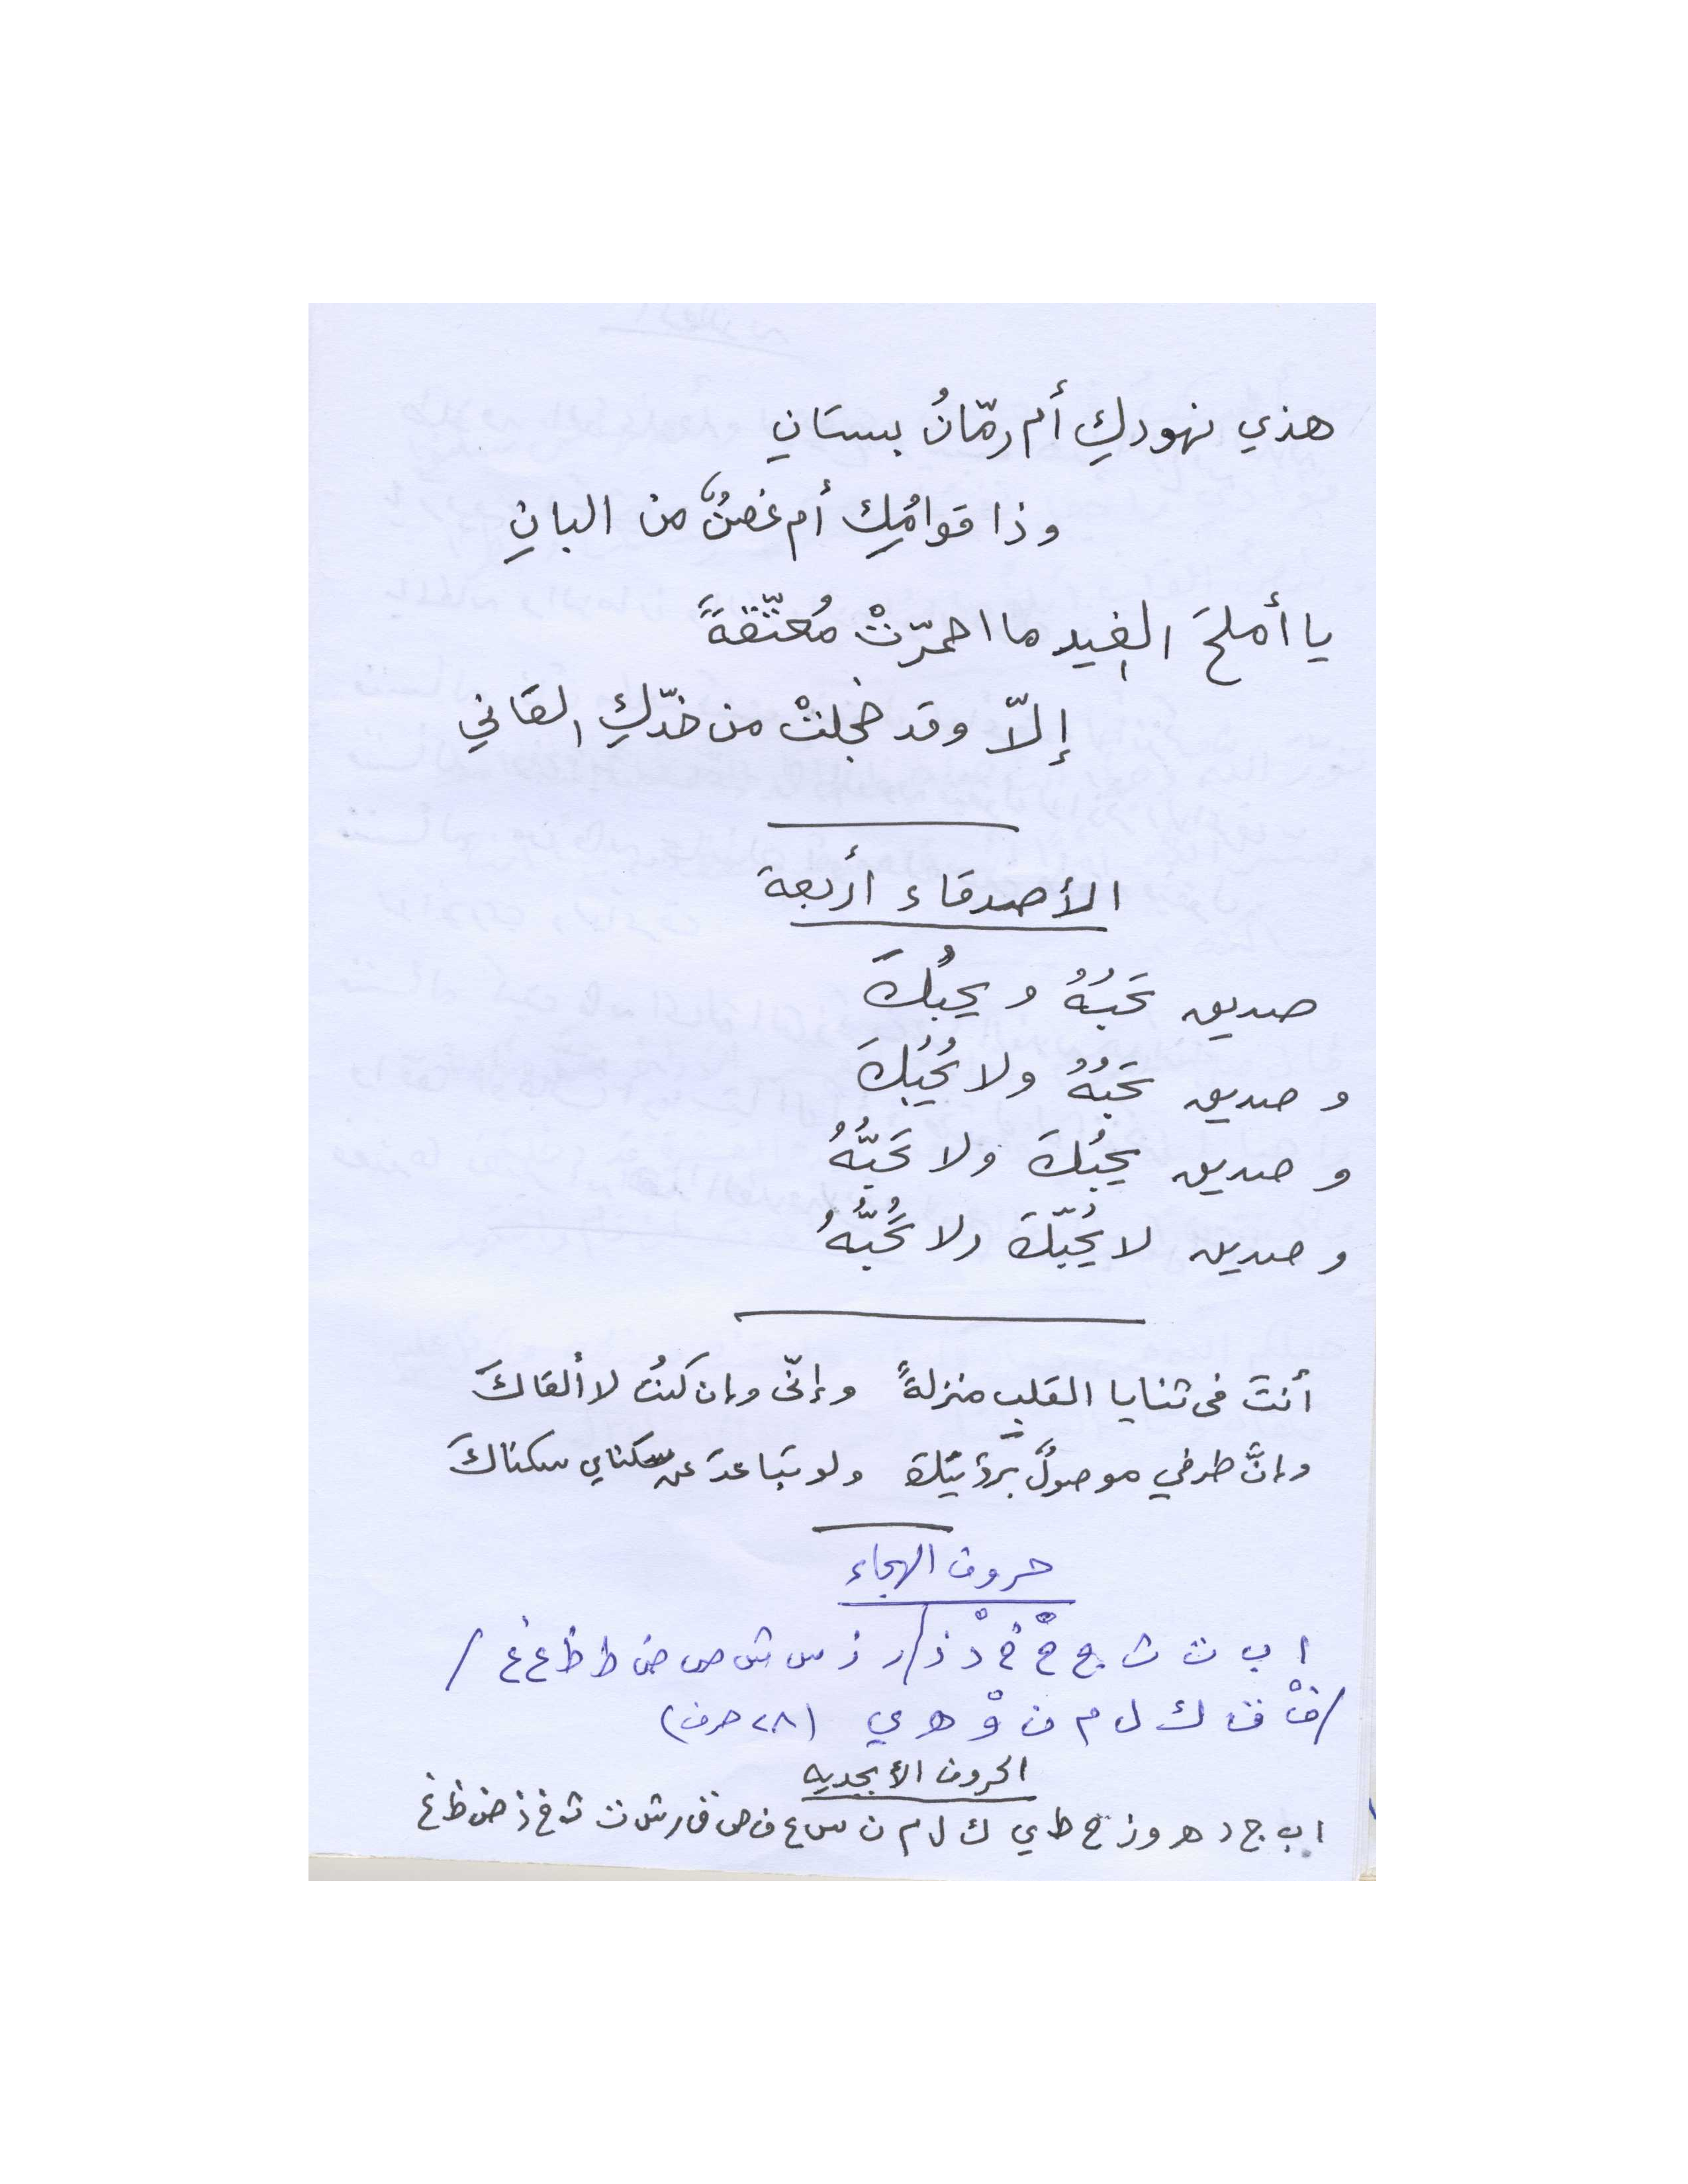 هذي نهودكِ أم رمّانُ بستَانِ
وذا قوامُكِ أم غصنٌ من البانِ
يا أملحَ الغِيد ما احمرّتْ مُعتّقةً
إلّا وقد خجلتْ من خدّكِ القَاني
الأصدقاء أربعة
صديق تحَبُهُ ويحبُكَ
وصديق تحَبُهُ ولا يُحُبُكَ
وصديق يحبُكَ ولا تحَبُّهُ
وصديق لا يُحُبّكَ ولا تُحُبُّهُ
أنتَ في ثنايا القلبِ منزلةً وإنّي وإن كنتُ لا ألقاكَ
وإنَّ طرفي موصولٌ برؤيتِكَ ولو تبَاعدَ عن سكناي سكناكَ
حروف الهجاء
ا ب ت ث ج حْ خ دْ ذ / ر ز س ش ص ض ط ظ ع غ /
/ فْ ق ك ل م ن وْ هـ ي (٢٨ حرف)
الحروف الأبجديه
ا ب ج د هـ و ز ح ط ي ك ل م ن س ع ف ص ق ر ش ت ث خ ذ ض ظ غ